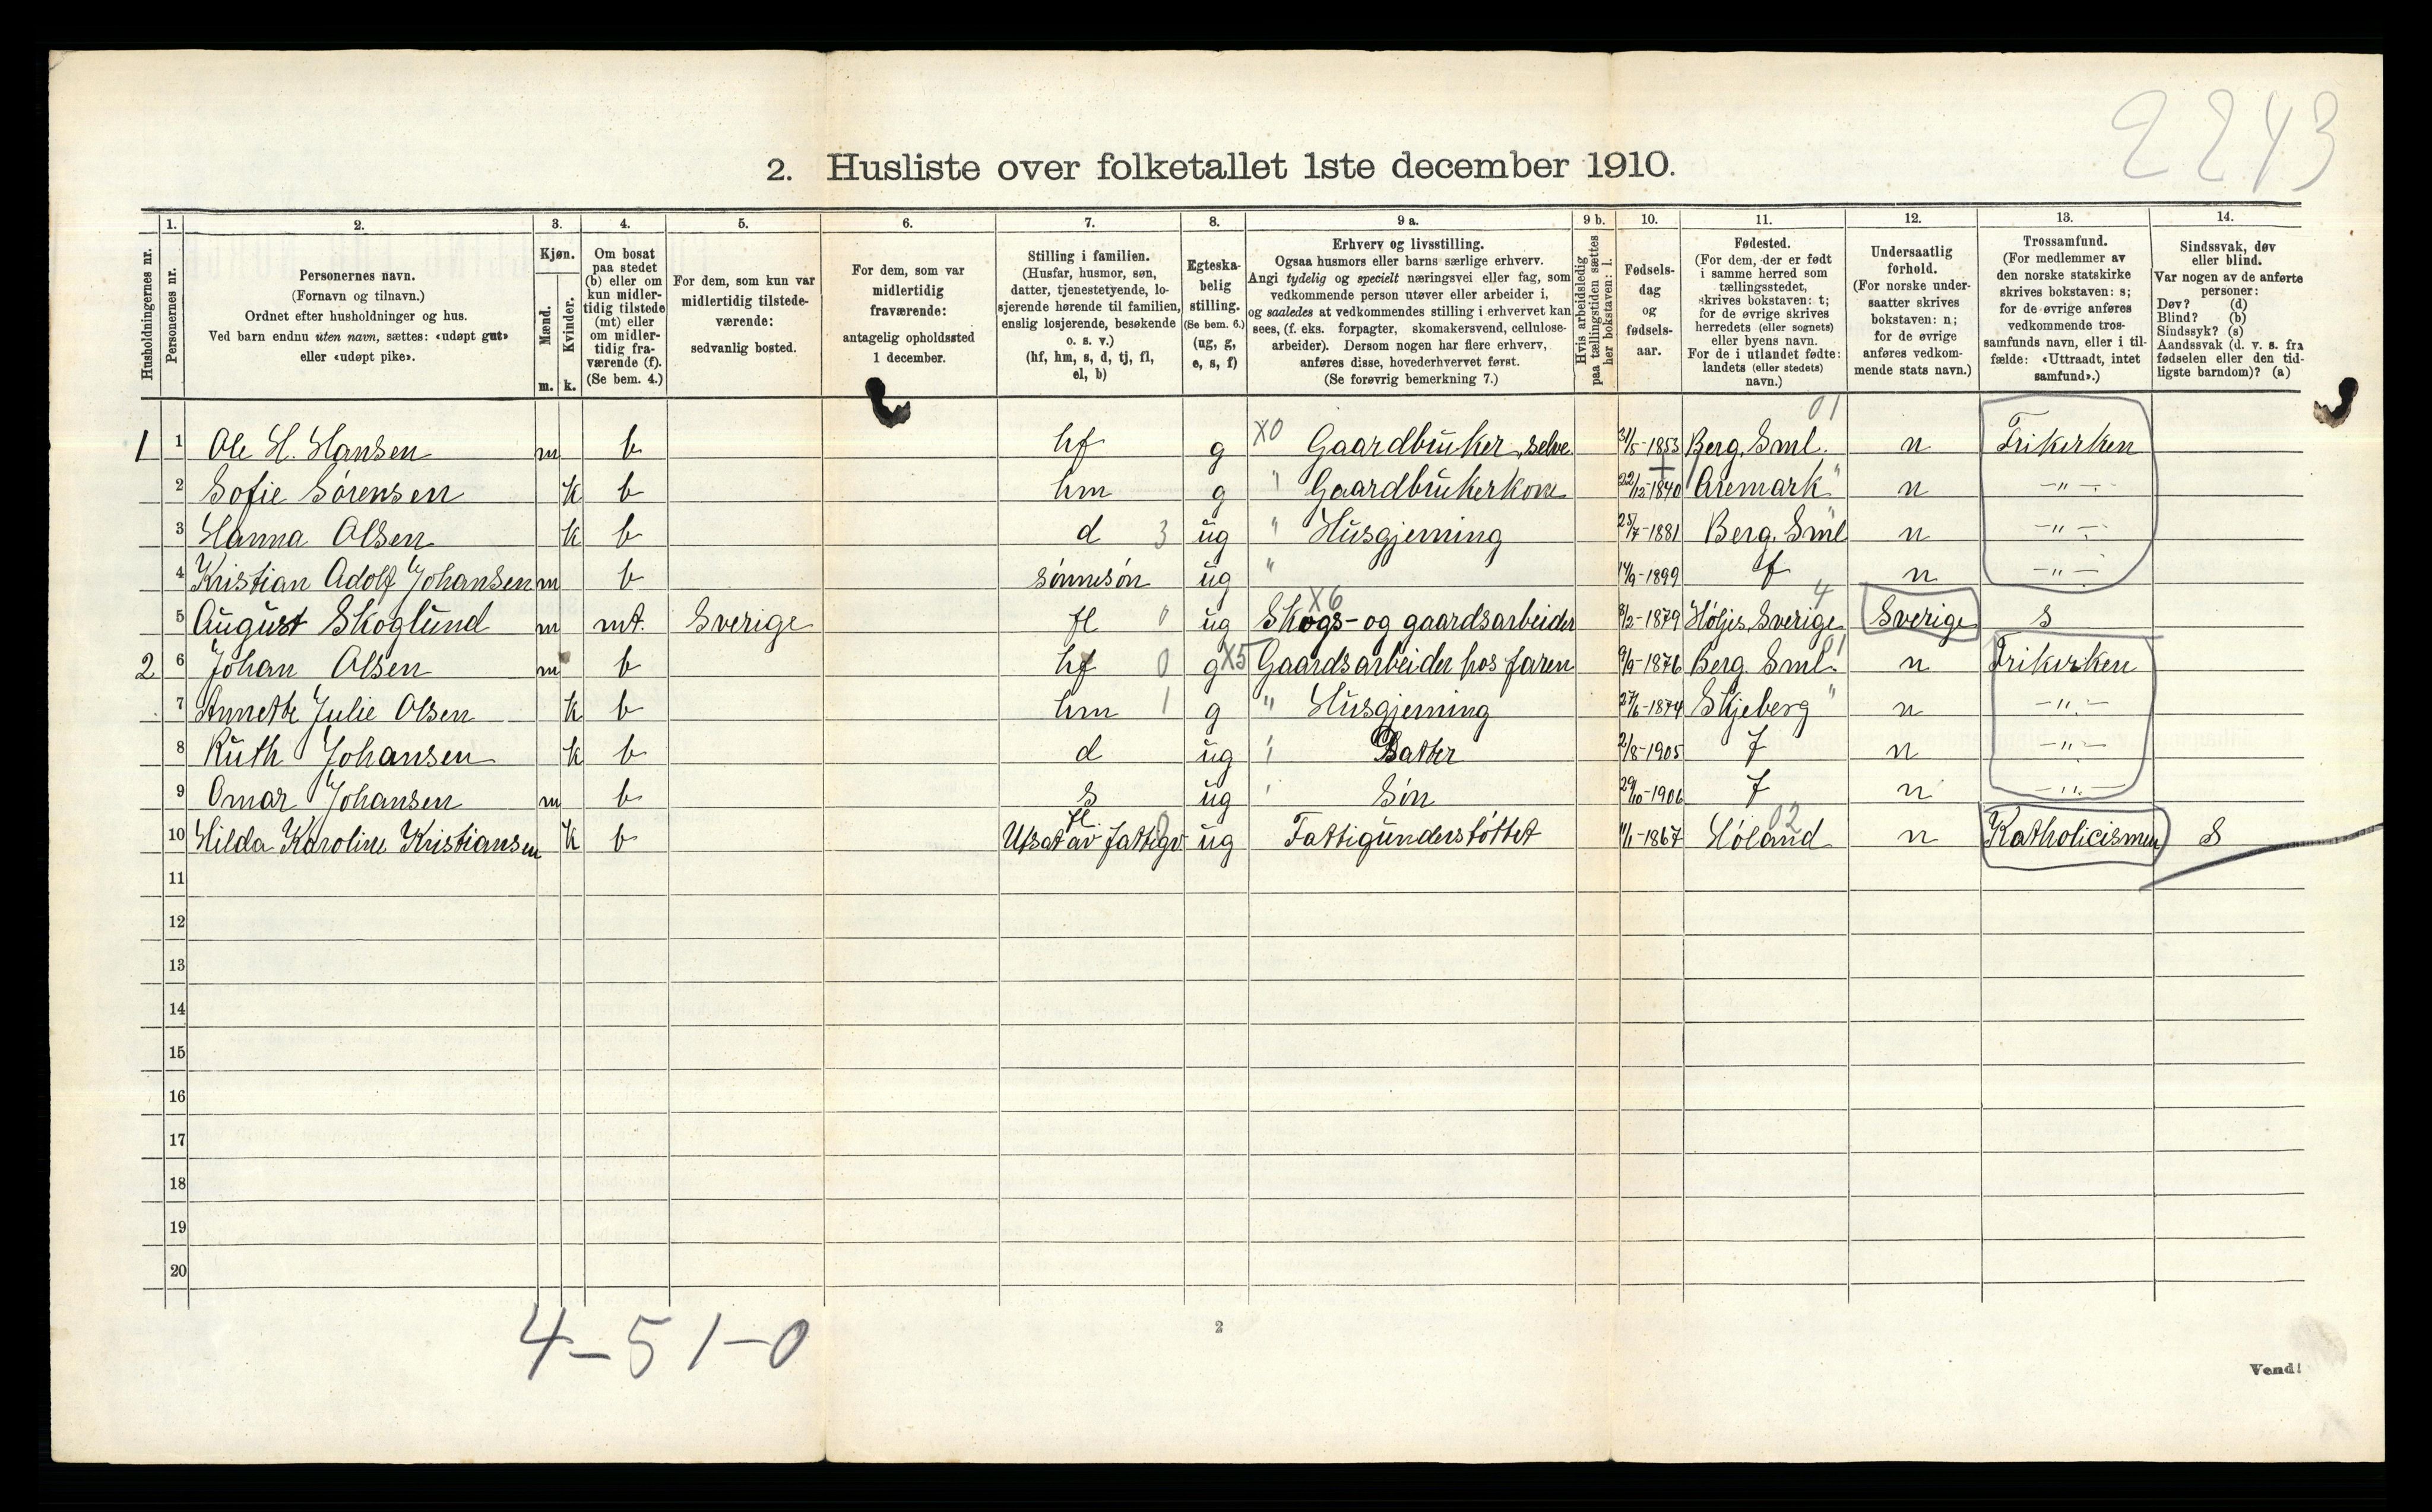 2243
2. Husliste over folketallet 1ste december 1910.
Husholdningernes nr.
1. Personernes nr.
2. Personernes navn.
(Fornavn og tilnavn.)
Ordnet efter husholdninger og hus.
Ved barn endnu uten navn, sættes: «udøpt gut»
eller «udøpt pike».
3. Kjøn.
Mænd. m.
Kvinder. k.
4. Om bosat
paa stedet
(b) eller om
kun midler-
tidig tilstede
(mt) eller
om midler-
tidig fra-
værende (f).
(Se bem. 4.)
5. For dem, som kun var
midlertidig tilstede-
værende:
sedvanlig bosted.
6. For dem, som var
midlertidig
fraværende:
antagelig opholdssted
1 december.
7. Stilling i familien.
(Husfar, husmor, søn,
datter, tjenestetyende, lo-
sjerende hørende til familien,
enslig losjerende, besøkende
o. s. v.)
(hf, hm, s, d, tj, fl,
el, b)
8. Egteska-
belig
stilling.
(Se bem. 6.)
(ug, g,
e, s, f)
9 a. Erhverv og livsstilling.
Ogsaa husmors eller barns særlige erhverv.
Angi tydelig og specielt næringsvei eller fag, som
vedkommende person utøver eller arbeider i,
og saaledes at vedkommendes stilling i erhvervet kan
sees, (f. eks. forpagter, skomakersvend, cellulose-
arbeider). Dersom nogen har flere erhverv,
anføres disse, hovederhvervet først.
(Se forøvrig bemerkning 7.)
9 b. Hvis arbeidsledig
paa tællingstiden sættes
her bokstaven: l.
10. Fødsels-
dag
og
fødsels-
aar.
11. Fødested.
(For dem, der er født
i samme herred som
tællingsstedet,
skrives bokstaven: t;
for de øvrige skrives
herredets (eller sognets)
eller byens navn.
For de i utlandet fødte:
landets (eller stedets)
navn.)
12. Undersaatlig
forhold.
(For norske under-
saatter skrives
bokstaven: n;
for de øvrige
anføres vedkom-
mende stats navn.)
13. Trossamfund.
(For medlemmer av
den norske statskirke
skrives bokstaven: s;
for de øvrige anføres
vedkommende tros-
samfunds navn, eller i til-
fælde: «Uttraadt, intet
samfund».)
14. Sindssvak, døv
eller blind.
Var nogen av de anførte
personer:
Døv? (d)
Blind? (b)
Sindssyk? (s)
Aandssvak (d. v. s. fra
fødselen eller den tid-
ligste barndom)? (a)
01
1 1 Ole H. Hansen m b hf g X0 Gaardbruker, selve. 31/5-1853 Berg, Sml. n Frikirken
2 Sofie Sørensen k b hm g " Gaardbrukerkone 22/12-1840 Aremark " n -"-
3 Hanna Olsen k b d 3 ug " Husgjerning 25/7-1881 Berg. Sml n -"-
4 Kristian Adolf Johansen m b sønnesøn ug " 14/9-1899 f n -"-
X6 4
5 August Skoglund m mt. Sverige fl 0 ug Skogs- og gaardsarbeider 8/2-1879 Høljes, Sverige Sverige s
01
2 6 Johan Olsen m b hf 0 g X5 Gaardsarbeider hos faren 9/9-1876 Berg Sml. n Frikirken
7 Annette Julie Olsen k b hm 1 g " Husgjerning 27/6-1874 Skjeberg " n -"-
8 Ruth Johansen k b d ug " Datter 2/8-1905 f n -"-
9 Omar Johansen m b s ug " Søn 29/10-1906 f n -"-
fl. 02
10 Hilda Karoline Kristiansen k b Utsat av fattigv ug Fattigunderstøttet 11/1-1867 Høland n Katholicismen S
11
12
13
14
15
16
17
18
19
20
4-51-0
2
Vend!